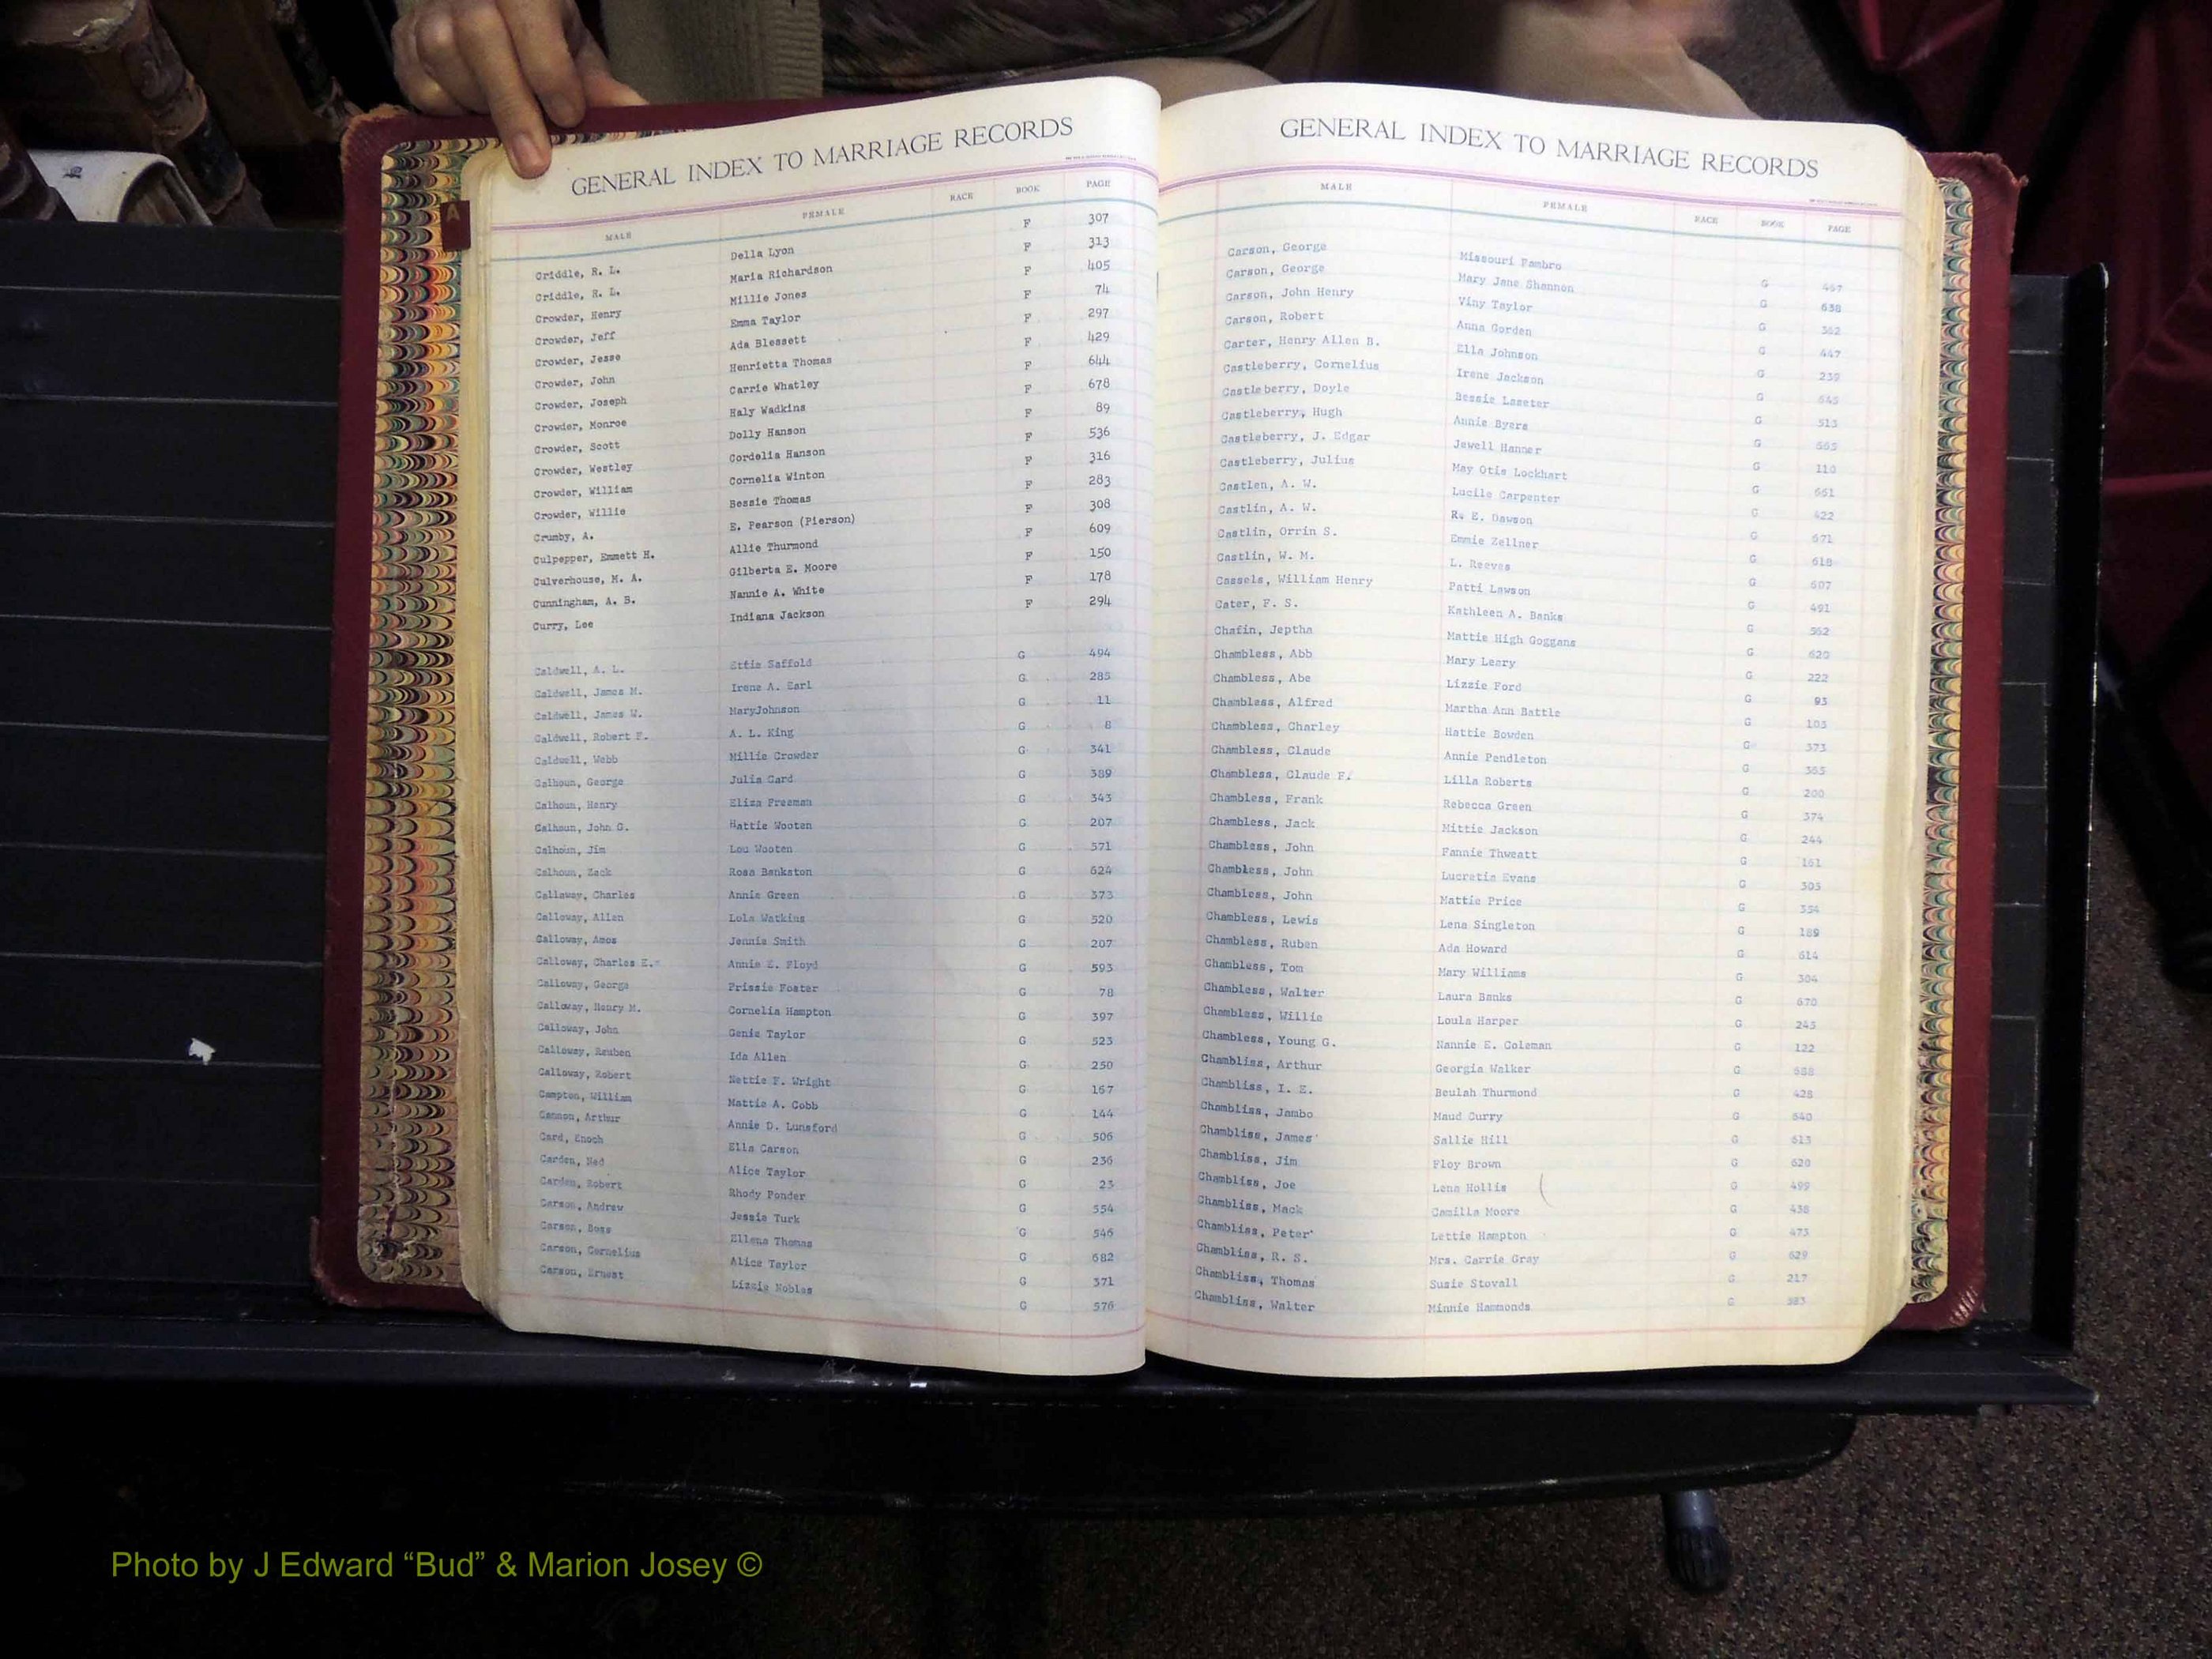 GENERAL INDEX TO MARRIAGE RECORDS
MALE FEMALE RACE BOOK PAGE
Criddle, R. L. Della Lyon F 307
Criddle, R. L. Maria Richardson F 313
Crowder, Henry Millie Jones F 405
Crowder, Jeff Emma Taylor F 74
Crowder, Jesse Ada Blessett F 297
Crowder, John Henrietta Thomas F 429
Crowder, Joseph Carrie Whatley F 644
Crowder, Monroe Haly Wadkins F 678
Crowder, Scott Dolly Hanson F 89
Crowder, Westley Cordelia Hanson F 536
Crowder, William Cornelia Winton F 316
Crowder, Willie Bessie Thomas F 283
Crumby, A. E. Pearson (Pierson) F 308
Culpepper, Emmett H. Allie Thurmond F 609
Culverhouse, M. A. Gilberta E. Moore F 150
Cunningham, A. B. Nannie A. White F 178
Curry, Lee Indiana Jackson F 294
Caldwell, A. L. Effie Saffold G 494
Caldwell, James M. Irene A. Earl G 285
Caldwell, James W. MaryJohnson G 11
Caldwell, Robert F. A. L. King G 8
Caldwell, Webb Millie Crowder G 341
Calhoun, George Julia Card G 389
Calhoun, Henry Eliza Freeman G 343
Calhoun, John G. Hattie Wooten G 207
Calhoun, Jim Lou Wooten G 571
Calhoun, Zack Rosa Bankston G 624
Callaway, Charles Annie Green G 373
Calloway, Allen Lola Watkins G 520
Calloway, Amos Jennie Smith G 207
Calloway, Charles E. Annie E. Floyd G 593
Calloway, George Prissie Foster G 78
Calloway, Henry M. Cornelia Hampton G 397
Calloway, John Genie Taylor G 523
Calloway, Reuben Ida Allen G 250
Calloway, Robert Nettie F. Wright G 167
Campton, William Mattie A. Cobb G 144
Cannon, Arthur Annie D. Lunsford G 506
Card, Enoch Ella Carson G 236
Carden, Ned Alice Taylor G 23
Carden, Robert Rhody Ponder G 554
Carson, Andrew Jessie Turk G 546
Carson, Boss Ellena Thomas G 682
Carson, Cornelius Alice Taylor G 371
Carson, Ernest Lizzie Nobles G 576
GENERAL INDEX TO MARRIAGE RECORDS
MALE FEMALE RACE BOOK PAGE
Carson, George Missouri Fambro G 467
Carson, George Mary Jane Shannon G 638
Carson, John Henry Viny Taylor G 362
Carson, Robert Anna Gorden G 447
Carter, Henry Allen B. Ella Johnson G 239
Castleberry, Cornelius Irene Jackson G 645
Castleberry, Doyle Bessie Laseter G 513
Castleberry, Hugh Annie Byers G 665
Castleberry, J. Edgar Jewell Hanner G 110
Castleberry, Julius May Otis Lockhart G 661
Castlen, A. W. Lucile Carpenter G 422
Castlin, A. W. R. E. Dawson G 671
Castlin, Orrin S. Emmie Zellner G 618
Castlin, W. M. L. Reeves G 607
Cassels, William Henry Patti Lawson G 491
Cater, F. S. Kathleen A. Banks G 562
Chafin, Jeptha Mattie High Goggans G 620
Chambless, Abb Mary Leary G 222
Chambless, Abe Lizzie Ford G 93
Chambless, Alfred Martha Ann Battle G 103
Chambless, Charley Hattie Bowden G 373
Chambless, Claude Annie Pendleton G 365
Chambless, Claude F. Lilla Roberts G 200
Chambless, Frank Rebecca Green G 374
Chambless, Jack Mittie Jackson G 244
Chambless, John Fannie Thweatt G 161
Chambless, John Lucretia Evans G 303
Chambless, John Mattie Price G 354
Chambless, Lewis Lena Singleton G 189
Chambless, Ruben Ada Howard G 614
Chambless, Tom Mary Williams G 304
Chambless, Walter Laura Banks G 670
Chambless, Willie Loula Harper G 245
Chambless, Young G. Nannie E. Coleman G 122
Chambliss, Arthur Georgia Walker G 688
Chambliss, I. E. Beulah Thurmond G 428
Chambliss, Jambo Maud Curry G 640
Chambliss, James Sallie Hill G 613
Chambliss, Jim Floy Brown G 620
Chambliss, Joe Lena Hollis G 499
Chambliss, Mack Camilla Moore G 438
Chambliss, Peter Lettie Hampton G 473
Chambliss, R. S. Mrs. Carrie Gray G 629
Chambliss, Thomas Susie Stovall G 217
Chambliss, Walter Minnie Hammonds G 383
Photo by J Edward “Bud” & Marion Josey ©